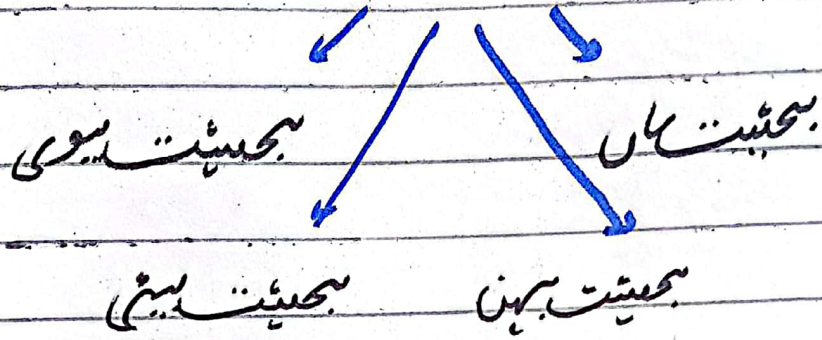 بحیثیت ماں
بحیثیت بیوی
بحیثیت بہن
بحیثیت بیٹی